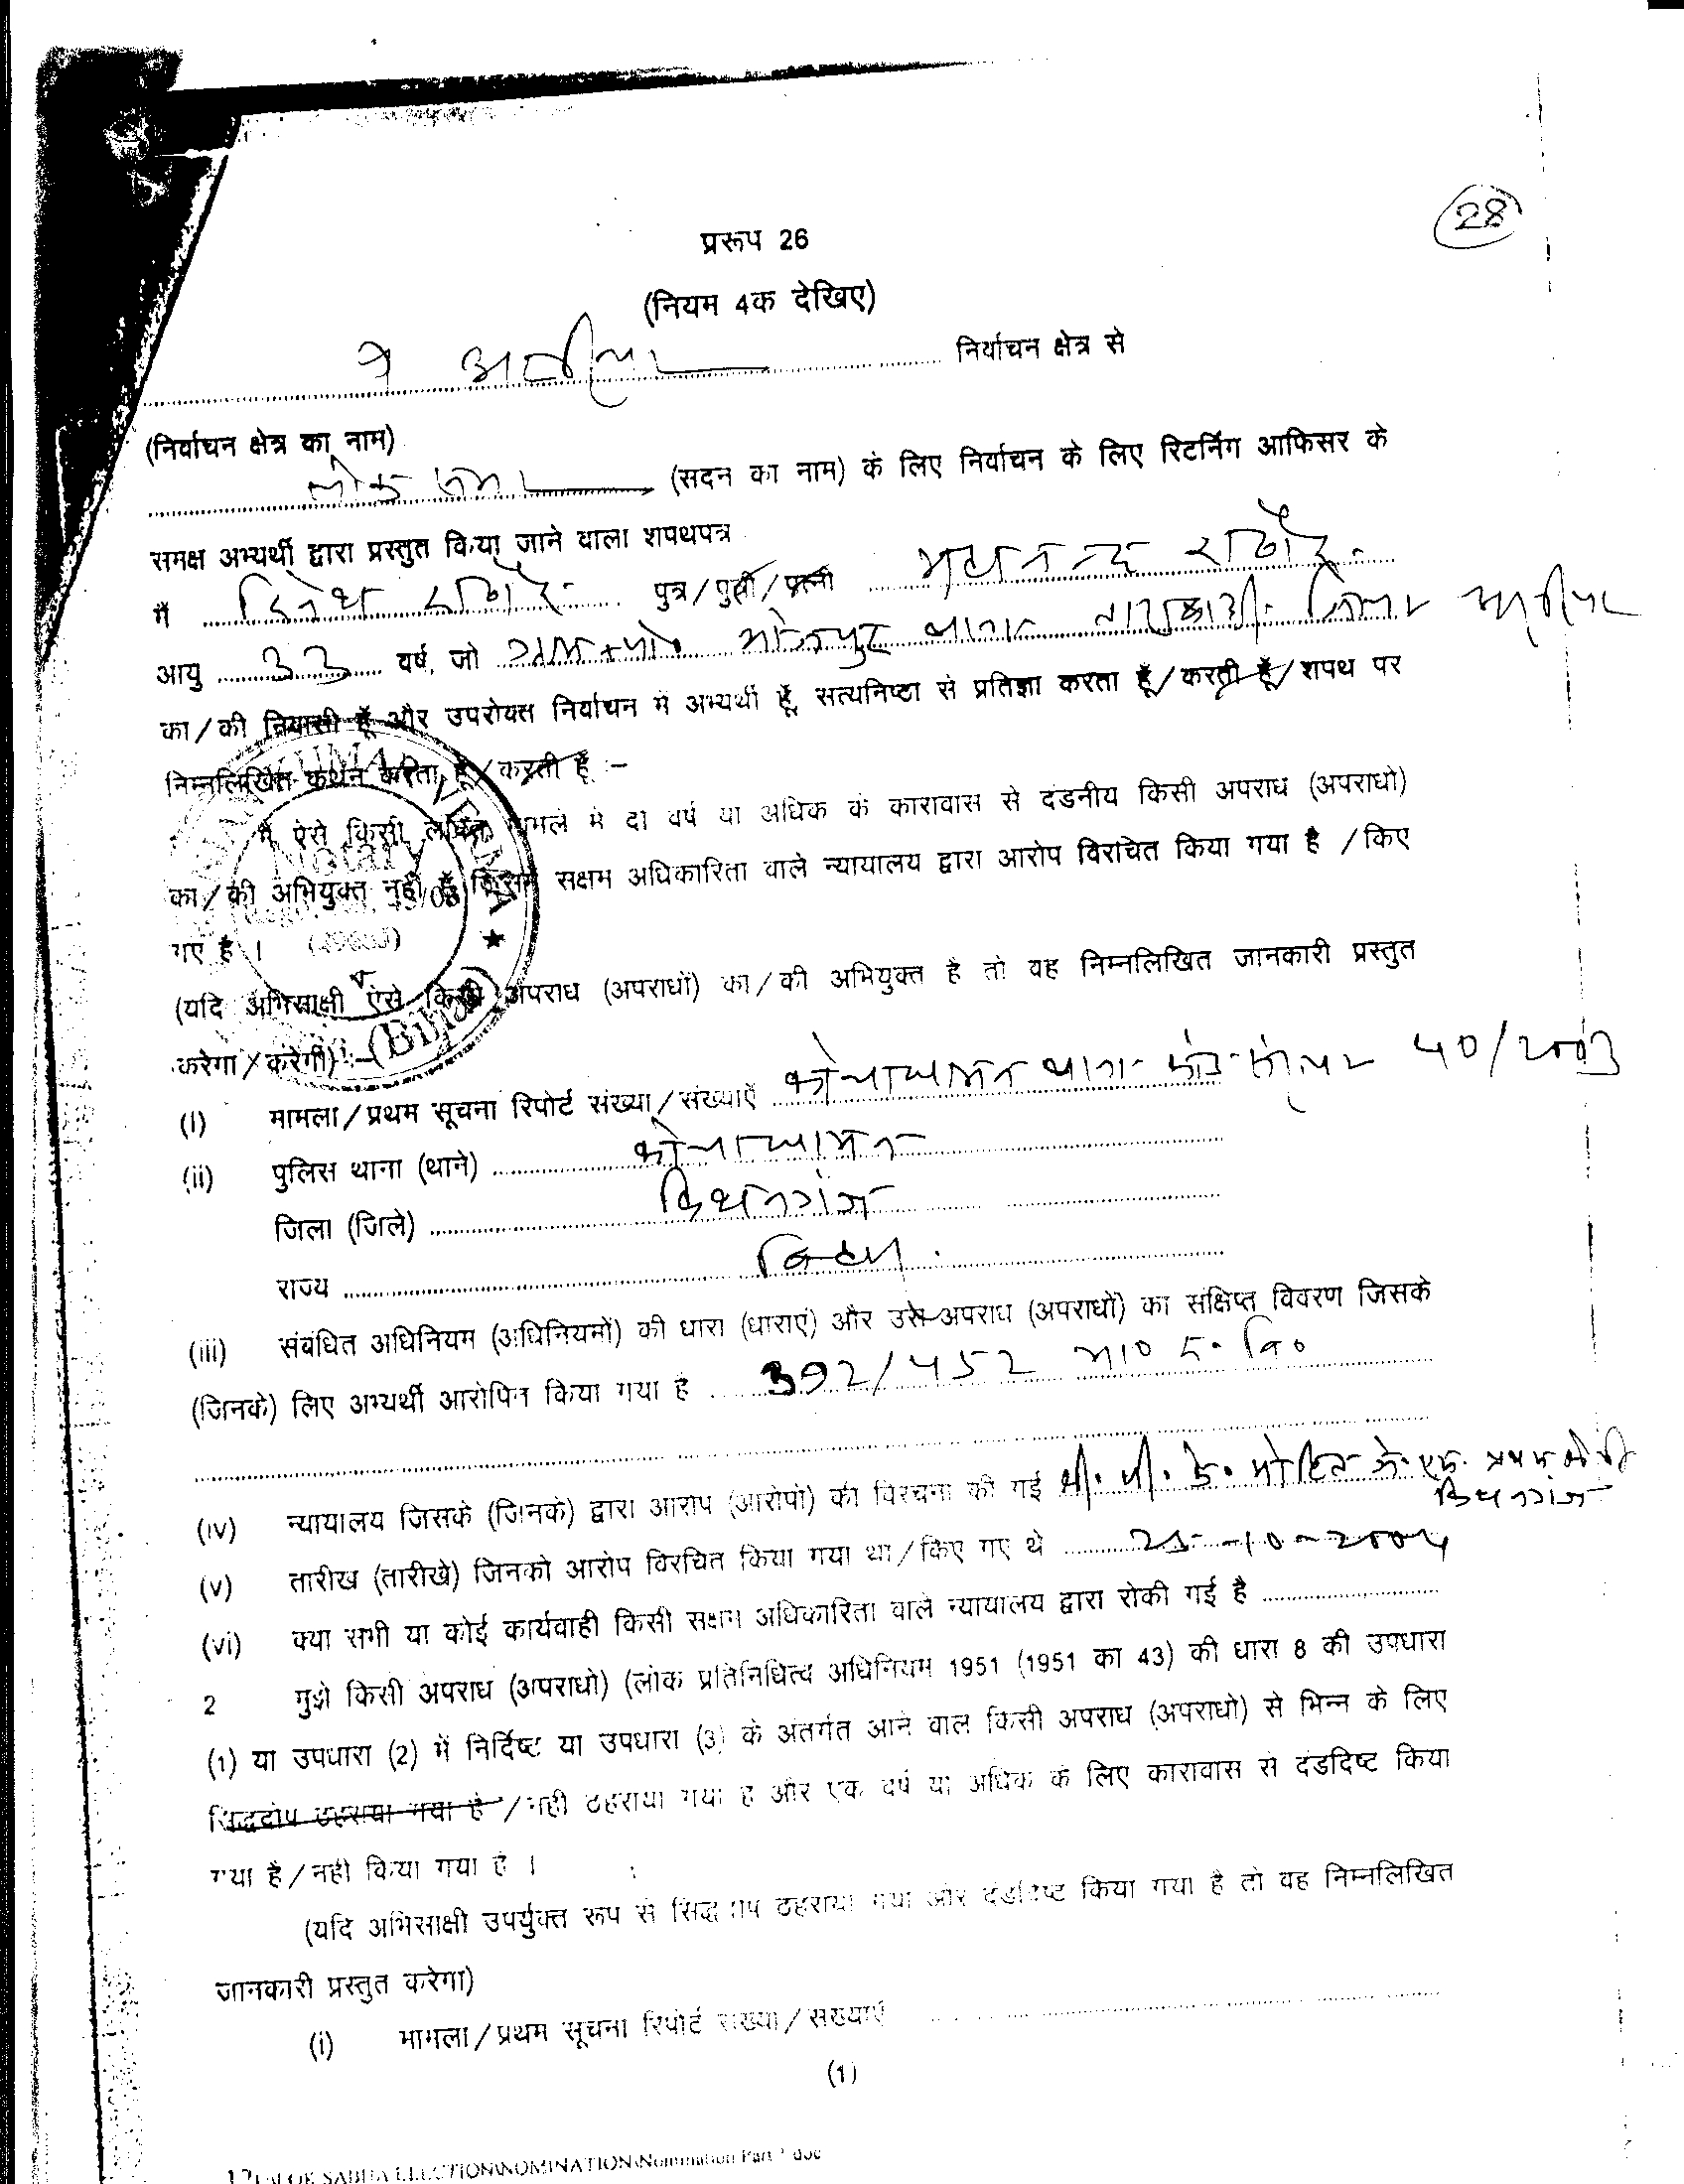 28
प्ररूप 26
(नियम 4क देखिए)
9 अररिया निर्वाचन क्षेत्र से
(निर्वाचन क्षेत्र का नाम)
लोक सभा (सदन का नाम) के लिए निर्वाचन के लिए रिटर्निंग आफिसर के
समक्ष अभ्यर्थी द्वारा प्रस्तुत किया जाने वाला शपथपत्र
मैं दिनेश राठौर पुत्र/पुत्री/पत्नी राठौर
आयु 33 वर्ष, जो ग्राम+पो०
का/की निवासी हूँ और उपरोक्त निर्वाचन में अभ्यर्थी हूँ, सत्यनिष्टा से प्रतिज्ञा करता हूँ/करती हूँ/शपथ पर
निम्नलिखित कथन करता हूँ/करती हूँ :-
मै ऐसे किसी लंबित मामले मे दो वर्ष या अधिक के कारावास से दंडनीय किसी अपराध (अपराधो)
का/की अभियुक्त नही हूँ जिसमे सक्षम अधिकारिता वाले न्यायालय द्वारा आरोप विरचित किया गया है /किए
गए है ।
(यदि अभिसाक्षी ऐसे किसी अपराध (अपराधों) का/की अभियुक्त है तो वह निम्नलिखित जानकारी प्रस्तुत
करेगा/करेगी) :-
(Bihar)
(i) मामला/प्रथम सूचना रिपोर्ट संख्या/संख्याएँ कोचाधामन थाना 40/2003
(ii) पुलिस थाना (थाने) कोचाधामन
जिला (जिले) किशनगंज
राज्य बिहार
(iii) संबंधित अधिनियम (अधिनियमों) की धारा (धाराएं) और उस अपराध (अपराधों) का संक्षिप्त विवरण जिसके
(जिनके) लिए अभ्यर्थी आरोपित किया गया है 392/452 भा० द० वि०
(iv) न्यायालय जिसके (जिनके) द्वारा आरोप (आरोपों) की विरचना की गई
किशनगंज
(v) तारीख (तारीखे) जिनको आरोप विरचित किया गया था/किए गए थे -10-2004
(vi) क्या सभी या कोई कार्यवाही किसी सक्षम अधिकारिता वाले न्यायालय द्वारा रोकी गई है
2 मुझे किसी अपराध (अपराधो) (लोक प्रतिनिधित्व अधिनियम 1951 (1951 का 43) की धारा 8 की उपधारा
(1) या उपधारा (2) में निर्दिष्ट या उपधारा (3) के अंतर्गत आने वाले किसी अपराध (अपराधो) से भिन्न के लिए
सिद्धदोष ठहराया गया है /नही ठहराया गया है और एक वर्ष या अधिक के लिए कारावास से दंडदिष्ट किया
गया है/नही किया गया है ।
(यदि अभिसाक्षी उपर्युक्त रूप से सिद्धदोष ठहराया गया और दंडदिष्ट किया गया है तो वह निम्नलिखित
जानकारी प्रस्तुत करेगा)
(i) मामला/प्रथम सूचना रिपोर्ट संख्या/संख्याएं
(1)
SABHA ELECTION\NOMINATION\Nomination Part doc